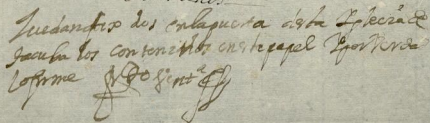 quedan fixados en la puerta desta Iglecia de
Tacuba los contenidos en este papel y por verdad
lo firme